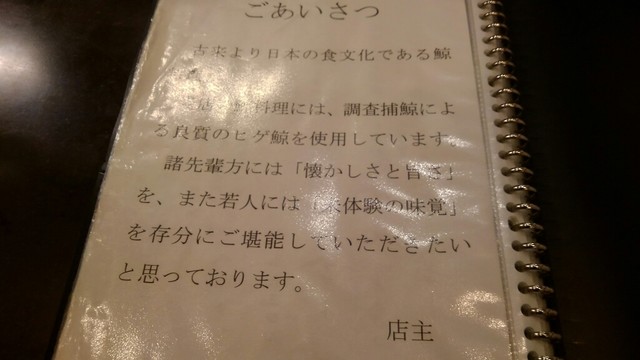 ごあいさつ
古来より日本の食文化である鯨
料理には、調査捕鯨によ
る良質のヒゲ鯨を使用しています。
諸先輩方には「懐かしさと旨さ」
を、また若人には「未体験の味覚」
を存分にご堪能していただきたい
と思っております。
店主